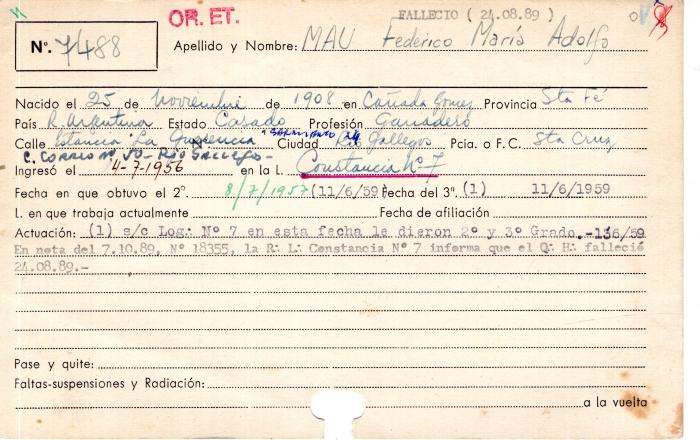 OR. ET.
FALLECIO ( 24.08.89 )
Nº. 7488
Apellido y Nombre: MAU Federico María Adolfo
Nacido el 25 de Noviembre de 1908 en Cañada Gomez Provincia Sta Fé
País R. Argentina Estado Casado Profesión Ganadero
Calle Estancia "La Querencia" Nº Ciudad Rio Gallegos Pcia. o F.C. Sta Cruz
C. CORREO Nº 50 - RIO GALLEGOS -
Ingresó el 4-7-1956 en la L. Constancia Nº 7
Fecha en que obtuvo el 2º. 8/7/1957 (11/6/59) Fecha del 3º. (1) 11/6/1959
L. en que trabaja actualmente Fecha de afiliación
Actuación: (1) s/c Log. Nº 7 en esta fecha le dieron 2º y 3º Grado.-136/59
En nota del 7.10.89, Nº 18355, la R. L. Constancia Nº 7 informa que el Q. H. falleció
24.08.89.-
Pase y quite:
Faltas-suspensiones y Radiación:
a la vuelta